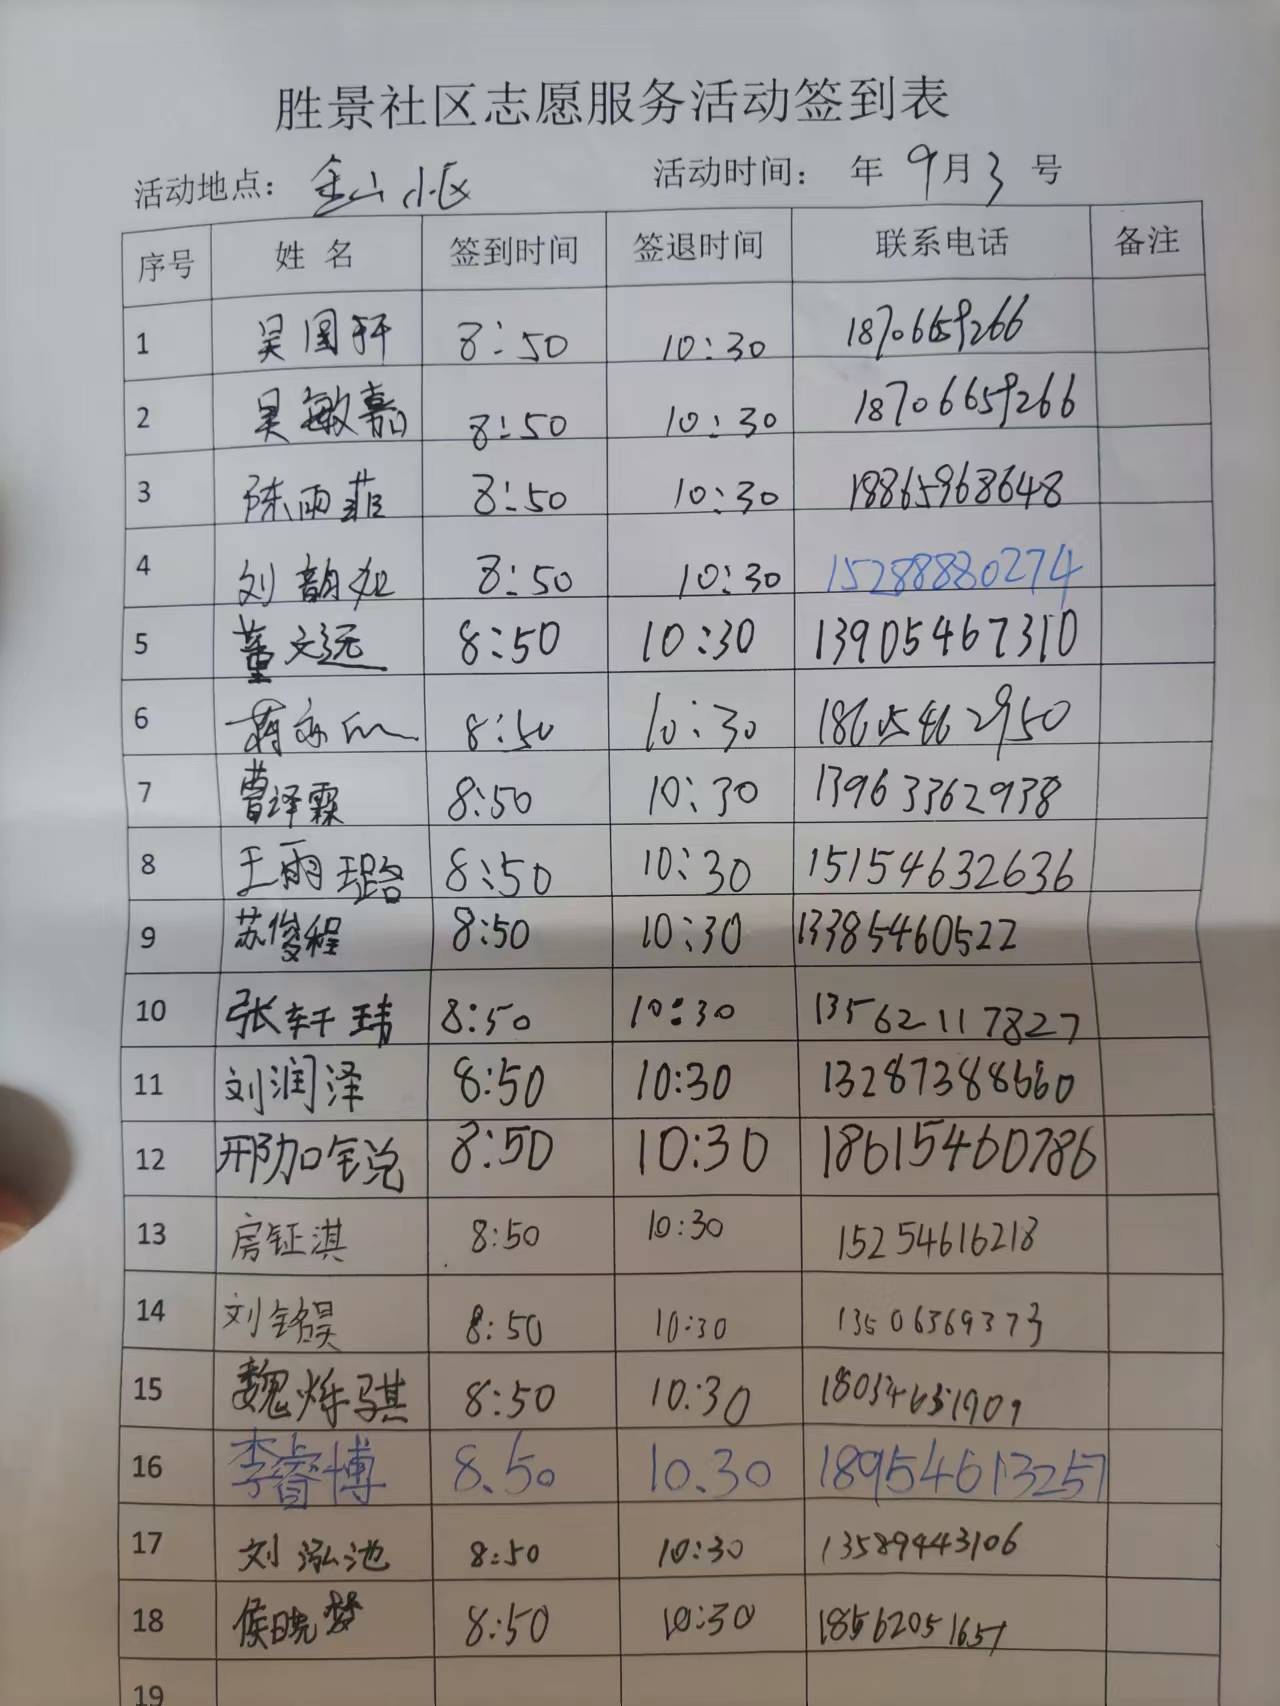 胜景社区志愿服务活动签到表
活动地点： 金山小区 活动时间： 年 9月3 号
序号 姓 名 签到时间 签退时间 联系电话 备注
1 吴国轩 8:50 10:30 18706659266
2 吴敏嘉 8:50 10:30 18706659266
3 陈雨菲 8:50 10:30 18865968648
4 刘韵如 8:50 10:30 15288880274
5 董文远 8:50 10:30 13905467310
6 8:50 10:30 18605462950
7 曹译霖 8:50 10:30 13963362938
8 王雨璐 8:50 10:30 15154632636
9 苏俊程 8:50 10:30 13385460522
10 张轩玮 8:50 10:30 13562117827
11 刘润泽 8:50 10:30 13287388660
12 邢加锐 8:50 10:30 18615460786
13 房钲淇 8:50 10:30 15254616218
14 刘铭昊 8:50 10:30 13506369373
15 魏烁骐 8:50 10:30
16 李睿博 8.50 10.30 18954613257
17 刘泓池 8:50 10:30 13589443106
18 侯晓梦 8:50 10:30 18562051657
19